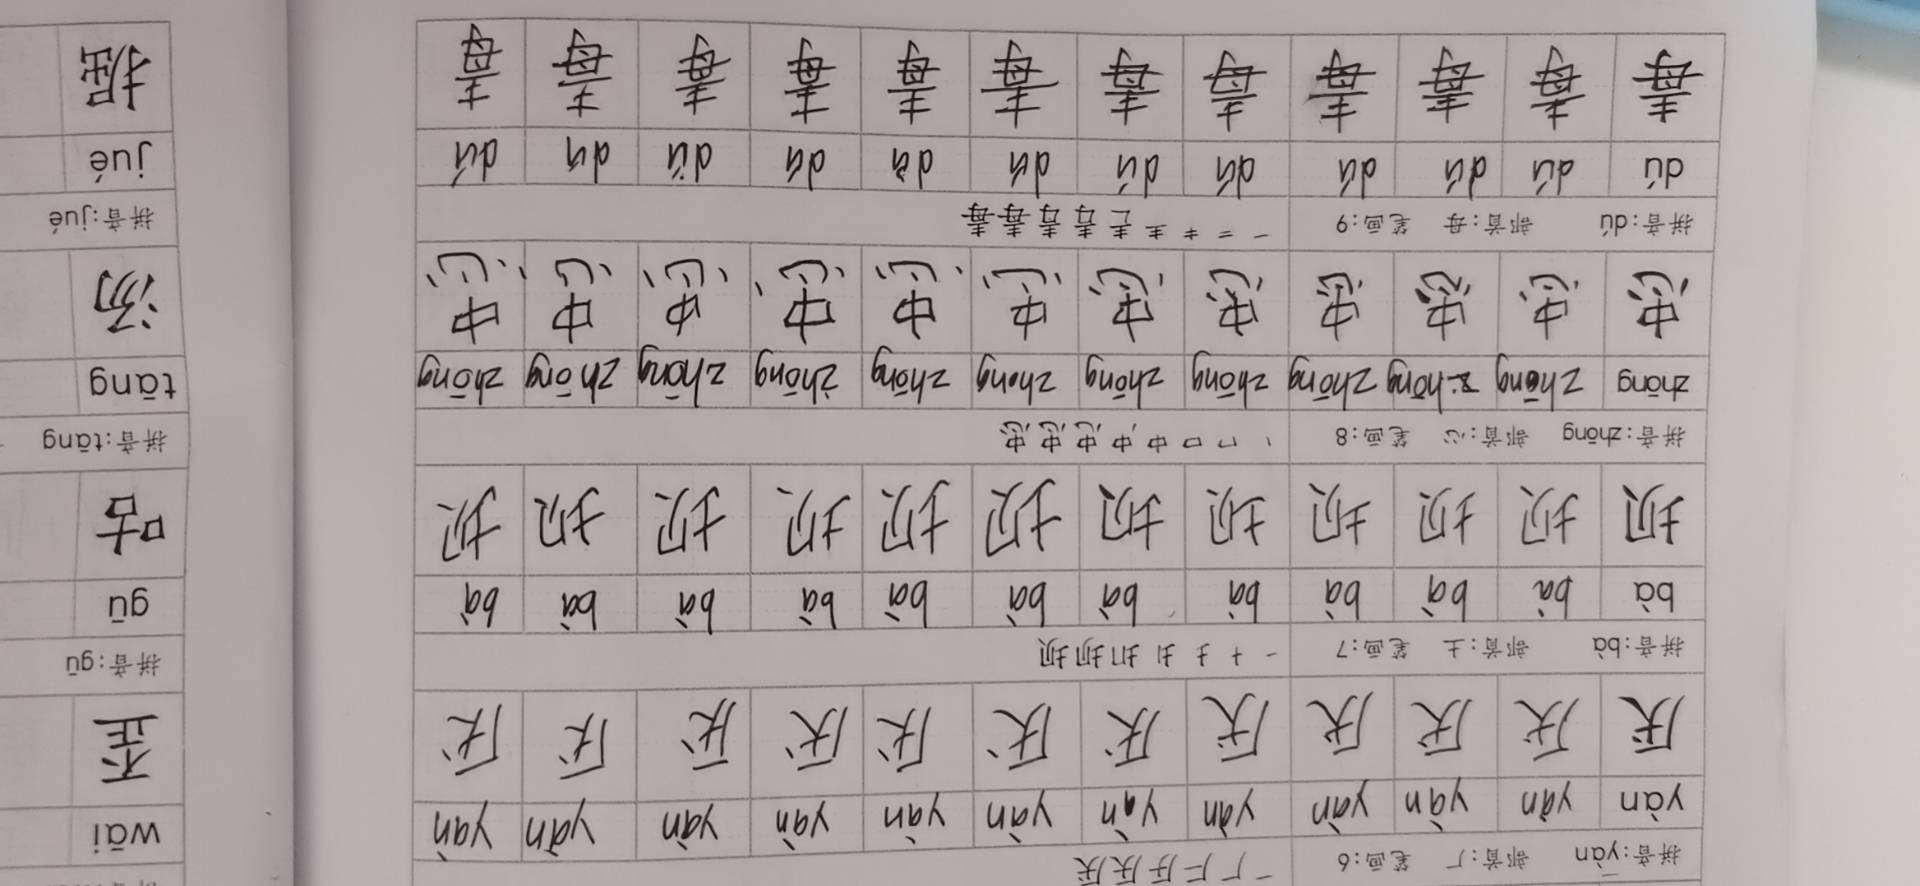 拼音:yàn 部首:厂 笔画:6
yàn yàn yàn yàn yàn yàn yàn yàn yàn yàn yàn yàn
厌 厌 厌 厌 厌 厌 厌 厌 厌 厌 厌 厌
拼音:bà 部首:土 笔画:7
bà bà bà bà bà bà bà bà bà bà bà bà
坝 坝 坝 坝 坝 坝 坝 坝 坝 坝 坝 坝
拼音:zhōng 部首:心 笔画:8
zhōng zhōng zhōng zhōng zhōng zhōng zhōng zhōng zhōng zhōng zhōng zhōng
忠 忠 忠 忠 忠 忠 忠 忠 忠 忠 忠 忠
拼音:dú 部首:母 笔画:9
dú dú dú dú dú dú dú dú dú dú dú dú
毒 毒 毒 毒 毒 毒 毒 毒 毒 毒 毒 毒
wāi
歪
拼音:gū
gū
咕
拼音:tāng
tāng
汤
拼音:jué
jué
掘